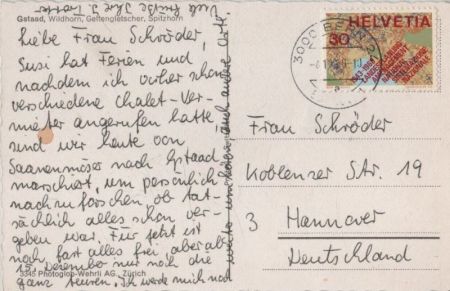 Viele Grüße Ihre J.
Gstaad, Wildhorn, Geltengletscher, Spitzhorn
Liebe Frau Schröder,
Susi hat Ferien und
nachdem ich vorher schon
verschiedene Chalet-Ver-
mieter angerufen hatte
sind wir heute von
Saanenmöser nach Gstaad
marschiert, um persönlich
nachzuforschen ob tat-
sächlich alles schon ver-
geben war. Für jetzt ist
noch fast alles frei, aber ab
15. Dezember nur noch die
ganz teuren. Ich werde mich noch
weiter umhören, auch andere Orte.
3345 Photoglob-Wehrli AG, Zürich
3000 BERN
HELVETIA
30
Frau Schröder
Koblenzer Str. 19
3 Hannover
Deutschland